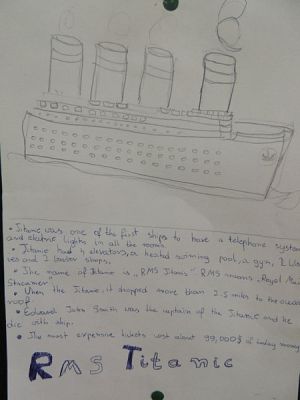 • Titanic was one of the first ships to have a telephone system
and electric lights in all the rooms.
• Titanic had 4 elevators, a heated swimming pool, a gym, 2
ies and 2 barber shops.
• The name of Titanic is „RMS Titanic" RMS means „Royal
Steamer"
• When the Titanic, it dropped more than 2.5 miles to the ocean
roof.
• Edward John Smith was the captain of the Titanic and he
die with ship.
• The most expensive tickets cost about 99,000$ of today money
RMS Titanic